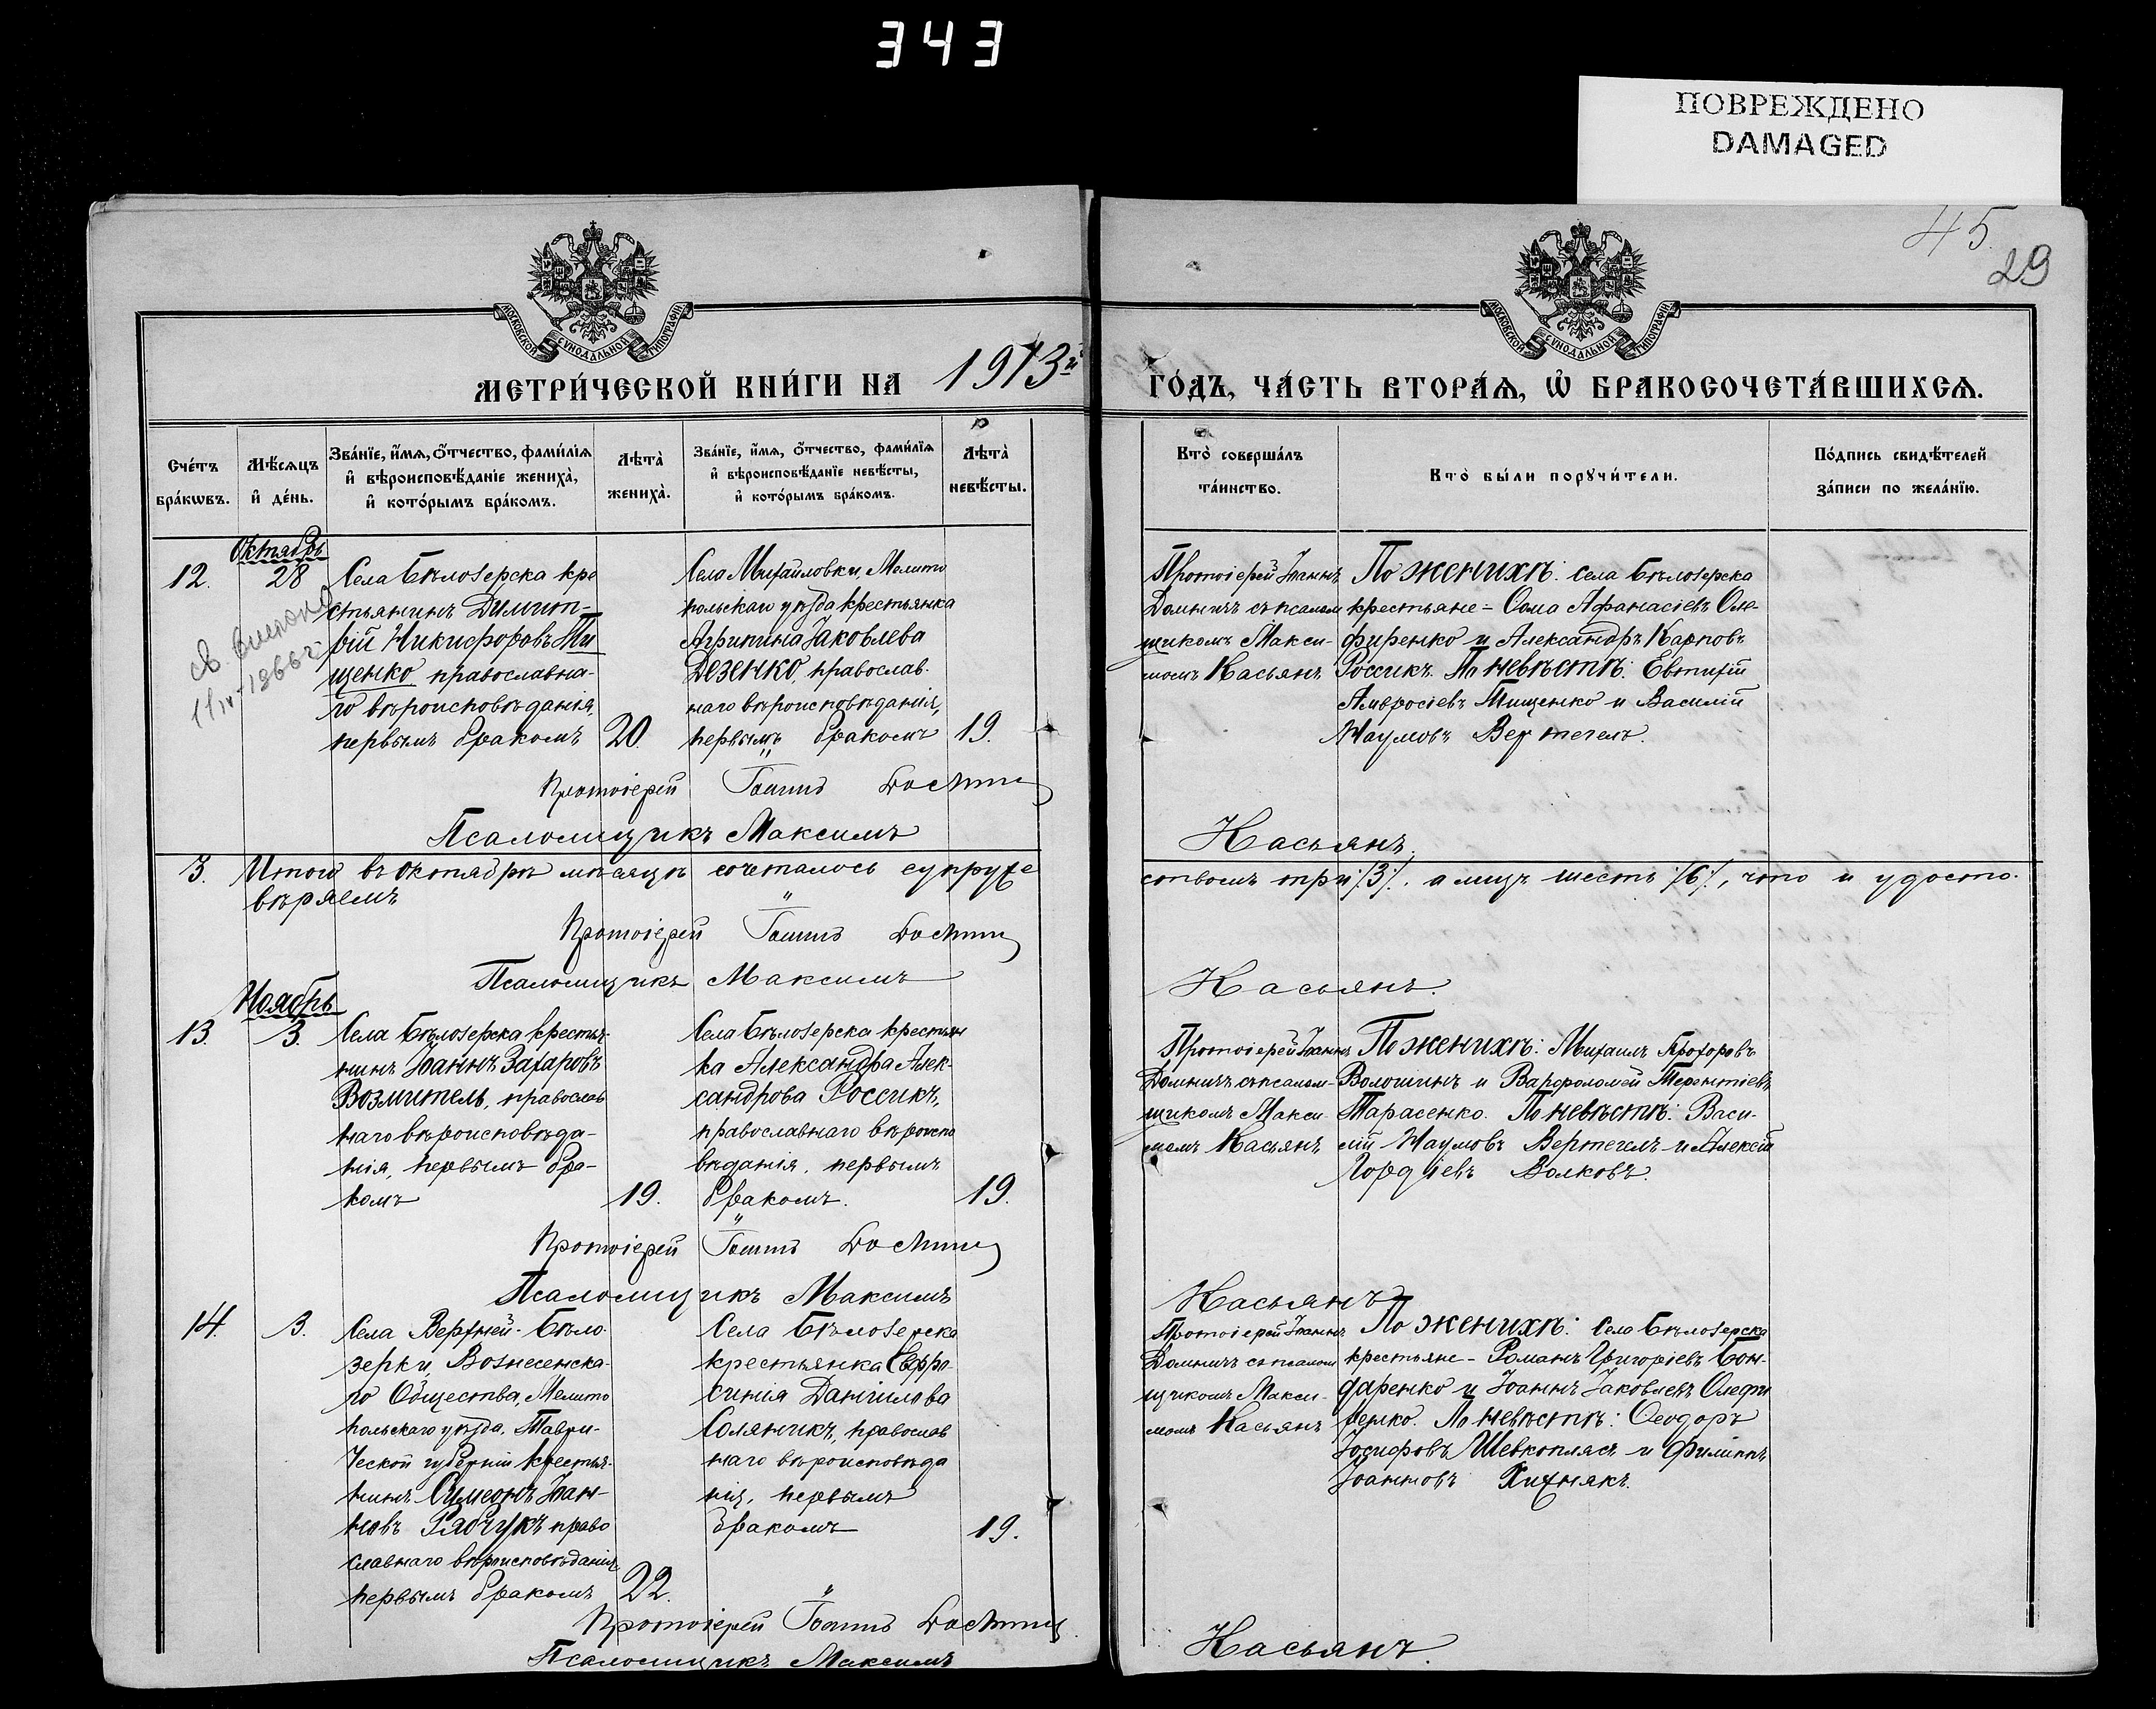 343
ПОВРЕЖДЕНО
DAMAGED
45.
29
МОСКОВСКОЙ СѴНОДАЛЬНОЙ ТИПОГРАФІИ.
МОСКОВСКОЙ СѴНОДАЛЬНОЙ ТИПОГРАФІИ.
МЕТРИ́ЧЕСКОЙ КНИ́ГИ НА 1913й
ГО́ДЪ, ЧА́СТЬ ВТОРА́Ѧ, Ѽ БРАКОСОЧЕТА́ВШИХСѦ.
Сче́тъ
бра́кѡвъ.
Мѣ́сѧцъ
и҆ де́нь.
Зва́нїе, и҆́мѧ, ѻ҆́тчество, фами́лїѧ
и҆ вѣроисповѣ́данїе жениха̀,
и҆ кото́рымъ бра́комъ.
Лѣта̀
жениха̀.
Зва́нїе, и҆́мѧ, ѻ҆́тчество, фами́лїѧ
и҆ вѣроисповѣ́данїе невѣ́сты,
и҆ кото́рымъ бра́комъ.
Лѣта̀
невѣ́сты.
Кто̀ соверша́лъ
та́инство.
Кто̀ бы́ли порꙋчи́тели.
По́дпись свидѣ́телей
за́писи по жела́нїю.
Октябрь
12.
28
св.
11/IV-1966г.
Села Бѣлозерска кре
стьянинъ Димит-
рій Никифоровъ Ти
щенко, православна-
го вѣроисповѣданія,
первымъ бракомъ
20.
Села Михайловки, Мелито
польскаго уѣзда крестьянка
Агрипина Іаковлева
Дезенко, православ-
наго вѣроисповѣданія,
первымъ бракомъ
19.
Протоіерей Іоаннъ
Домничъ съ псалом
щикомъ Макси-
момъ Касьянъ
По женихѣ: села Бѣлозерска
крестьяне - Ѳома Аѳанасіевъ Оле-
фиренко и Александръ Карповъ
Россикъ. По невѣстѣ: Евтихій
Амвросіевъ Тищенко и Василій
Наумовъ Вертегелъ.
Протоіерей Іоаннъ Домничъ
Псаломщикъ Максимъ
Касьянъ.
3. Итого въ октябрѣ мѣсяцѣ сочеталось супруже
ствомъ три /3/, а лицъ шесть /6/, что и удосто-
вѣряемъ
Протоіерей Іоаннъ Домничъ
Псаломщикъ Максимъ
Касьянъ.
Ноябрь
13.
3.
Села Бѣлозерска крестья-
нинъ Іоаннъ Захаровъ
Возмитель, православ
наго вѣроисповѣда-
нія, первымъ бра-
комъ
19.
Села Бѣлозерска крестьян
ка Александра Алек-
сандрова Россикъ,
православнаго вѣроиспо
вѣданія, первымъ
бракомъ.
19.
Протоіерей Іоаннъ
Домничъ съ псалом-
щикомъ Макси-
момъ Касьянъ
По женихѣ: Михаилъ Прохоровъ
Волошинъ и Варѳоломей Терентіевъ
Тарасенко. По невѣстѣ: Васи-
лій Наумовъ Вертегелъ и Алексій
Гордіевъ Волковъ.
Протоіерей Іоаннъ Домничъ
Псаломщикъ Максимъ
Касьянъ
14.
3.
Села Верхней-Бѣло-
зерки, Вознесенска-
го Общества, Мелито
польскаго уѣзда, Таври-
ческой губерніи крестья-
нинъ Симеонъ Іоан-
новъ Рябчукъ право
славнаго вѣроисповѣданія,
первымъ бракомъ
22.
Села Бѣлозерска
крестьянка Евфро-
синія Даніилова
Соляникъ, православ
наго вѣроисповѣда
нія, первымъ
бракомъ
19.
Протоіерей Іоаннъ
Домничъ съ псалом
щикомъ Макси-
момъ Касьянъ
По женихѣ: села Бѣлозерска
крестьяне - Романъ Григоріевъ Бон-
даренко и Іоаннъ Іаковлевъ Олефи
ренко. По невѣстѣ: Ѳеодоръ
Іосифовъ Шевкоплясъ и Филиппъ
Іоанновъ Хихнякъ.
Протоіерей Іоаннъ Домничъ
Псаломщикъ Максимъ
Касьянъ.